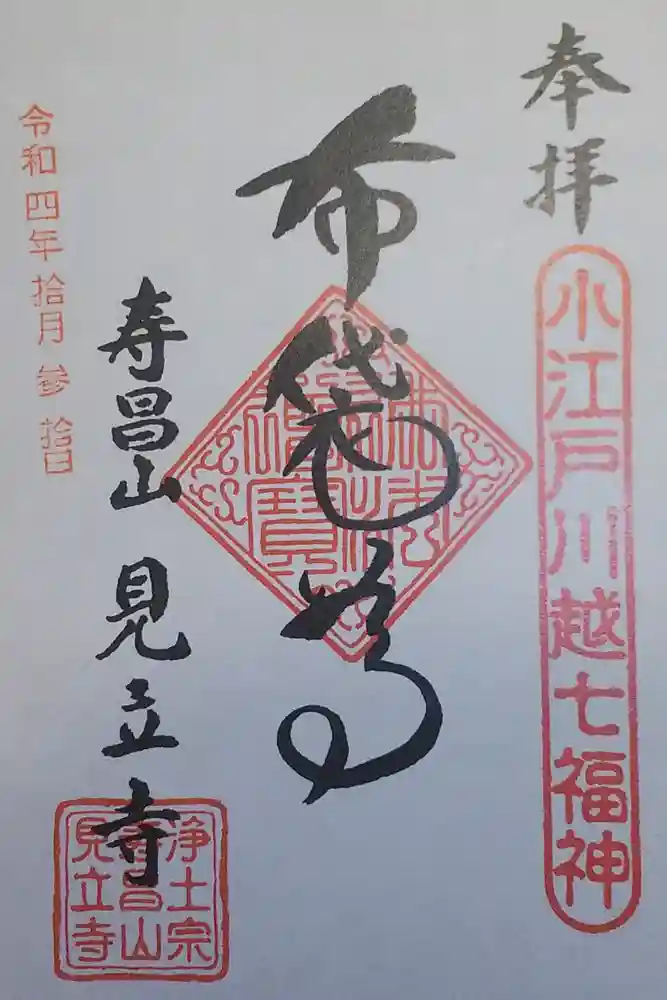 奉拝
小江戸川越七福神
布袋尊
佛法僧寶
寿昌山 見立寺
浄土宗
寿昌山
見立寺
令和四年拾月参拾日